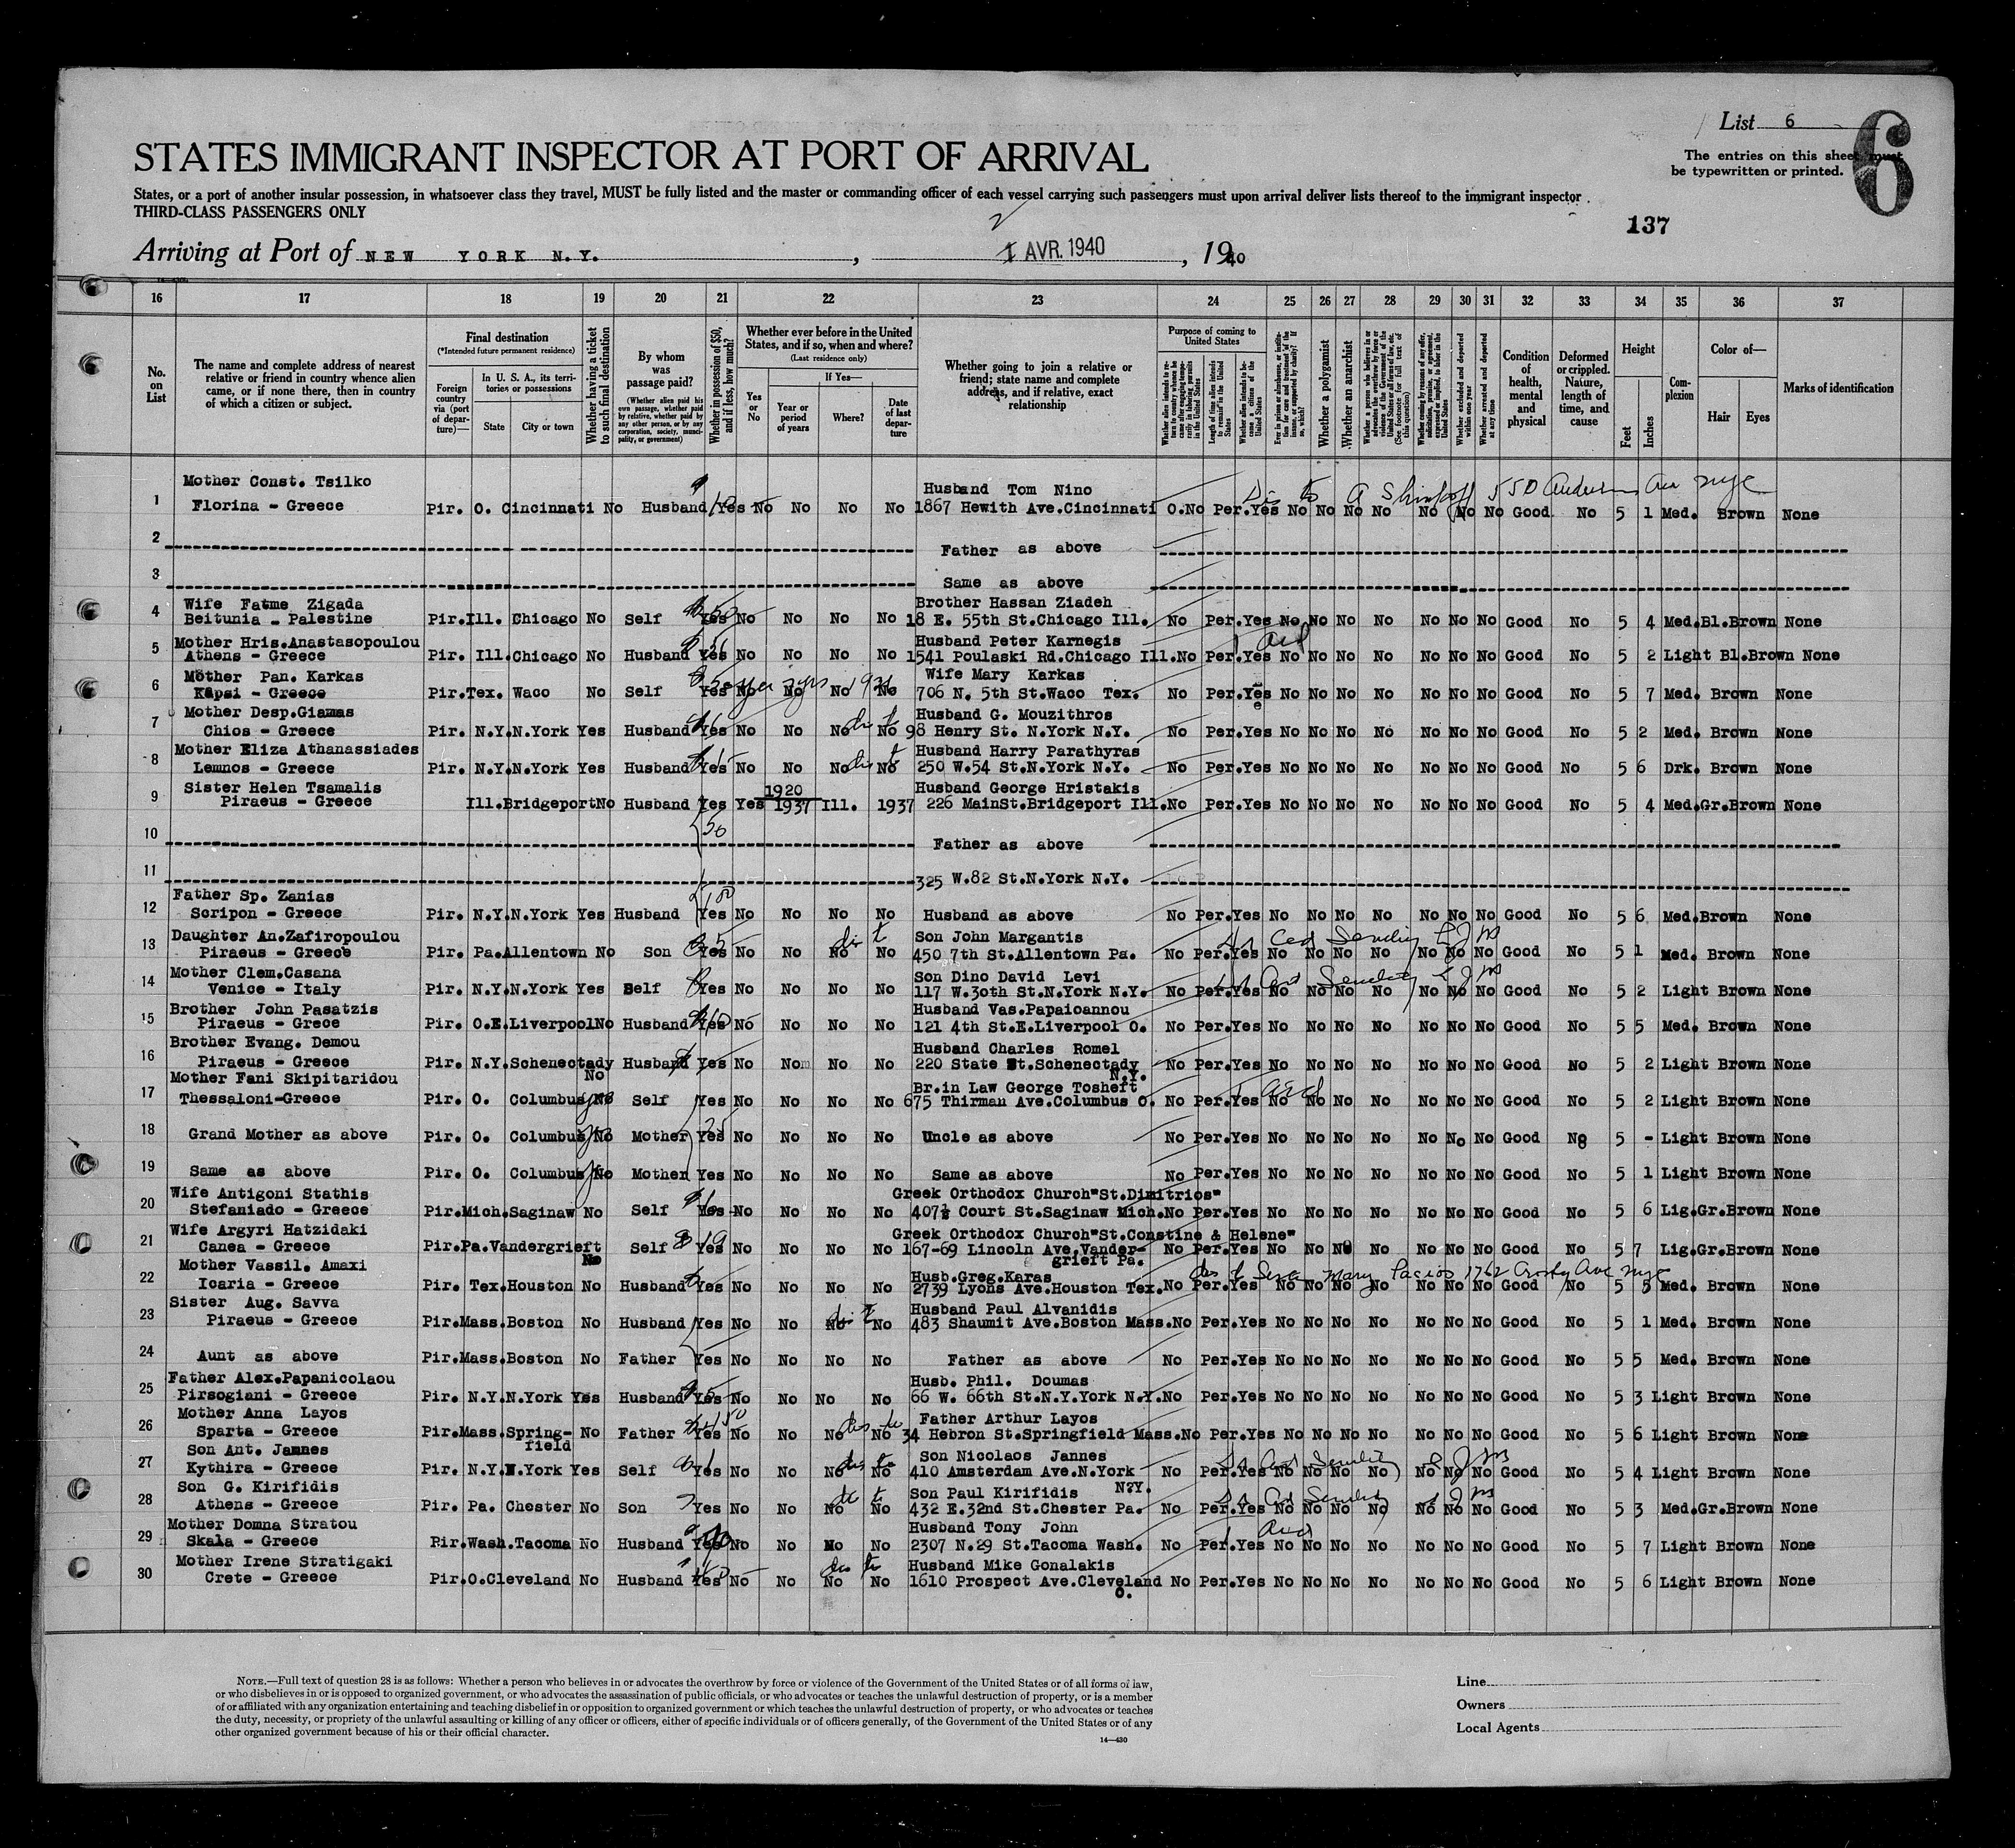 List 6
6
The entries on this sheet must
be typewritten or printed.
STATES IMMIGRANT INSPECTOR AT PORT OF ARRIVAL
States, or a port of another insular possession, in whatsoever class they travel, MUST be fully listed and the master or commanding officer of each vessel carrying such passengers must upon arrival deliver lists thereof to the immigrant inspector
THIRD-CLASS PASSENGERS ONLY
137
Arriving at Port of NEW YORK N.Y. , 1 AVR. 1940 , 1940
2
16 17 18 19 20 21 22 23 24 25 26 27 28 29 30 31 32 33 34 35 36 37
No. on List
The name and complete address of nearest relative or friend in country whence alien came, or if none there, then in country of which a citizen or subject.
Final destination
(*Intended future permanent residence)
Foreign country via (port of departure)—
In U. S. A., its territories or possessions
State
City or town
Whether having a ticket to such final destination
By whom was passage paid?
(Whether alien paid his own passage, whether paid by relative, whether paid by any other person, or by any corporation, society, municipality, or government)
Whether in possession of $50, and if less, how much?
Whether ever before in the United States, and if so, when and where?
(Last residence only)
Yes or No
If Yes—
Year or period of years
Where?
Date of last departure
Whether going to join a relative or friend; state name and complete address, and if relative, exact relationship
Purpose of coming to United States
Length of time alien intends to remain in the United States
Whether alien intends to become a citizen of the United States
Whether a polygamist
Whether an anarchist
Whether excluded and deported within one year
Whether arrested and deported at any time
Condition of health, mental and physical
Deformed or crippled. Nature, length of time, and cause
Height
Feet
Inches
Complexion
Color of—
Hair
Eyes
Marks of identification
Mother Const. Tsilko Husband Tom Nino
1 Florina - Greece Pir. O. Cincinnati No Husband Yes No No No No 1867 Hewith Ave.Cincinnati O.No Per.Yes No No No No No No No Good No 5 1 Med. Brown None
2 Father as above
3 Same as above
Wife Fatme Zigada Brother Hassan Ziadeh
4 Beitunia - Palestine Pir.Ill. Chicago No Self Yes No No No No 18 E. 55th St.Chicago Ill. No Per.Yes No No No No No No No Good No 5 4 Med.Bl.Brown None
Mother Hris.Anastasopoulou Husband Peter Karnegis
5 Athens - Greece Pir. Ill.Chicago No Husband Yes No No No No 1541 Poulaski Rd.Chicago Ill.No Per.Yes No No No No No No No Good No 5 2 Light Bl.Brown None
Mother Pan. Karkas Wife Mary Karkas
6 Kapsi - Greece Pir.Tex. Waco No Self Yes No No No No 706 N. 5th St.Waco Tex. No Per.Yes No No No No No No No Good No 5 7 Med. Brown None
Mother Desp.Giamas Husband G. Mouzithros
7 Chios - Greece Pir. N.Y.N.York Yes Husband Yes No No No No 98 Henry St. N.York N.Y. No Per.Yes No No No No No No No Good No 5 2 Med. Brown None
Mother Eliza Athanassiades Husband Harry Parathyras
8 Lemnos - Greece Pir. N.Y.N.York Yes Husband Yes No No No No 250 W.54 St.N.York N.Y. No Per.Yes No No No No No No No Good No 5 6 Drk. Brown None
Sister Helen Tsamalis 1920 Husband George Hristakis
9 Piraeus - Greece Ill.Bridgeport No Husband Yes Yes 1937 Ill. 1937 226 MainSt.Bridgeport Ill.No Per.Yes No No No No No No No Good No 5 4 Med.Gr.Brown None
50
10 Father as above
11 325 W.82 St.N.York N.Y.
Father Sp. Zanias 100
12 Scripon - Greece Pir. N.Y.N.York Yes Husband Yes No No No No Husband as above No Per.Yes No No No No No No No Good No 5 6 Med.Brown None
Daughter An.Zafiropoulou Son John Margantis
13 Piraeus - Greece Pir. Pa.Allentown No Son Yes No No No No 450 7th St.Allentown Pa. No Per.Yes No No No No No No No Good No 5 1 Med. Brown None
Mother Clem.Casana Son Dino David Levi
14 Venice - Italy Pir. N.Y.N.York Yes Self Yes No No No No 117 W.30th St.N.York N.Y. No Per.Yes No No No No No No No Good No 5 2 Light Brown None
Brother John Pasatzis Husband Vas.Papaioannou
15 Piraeus - Grece Pir. O.E.Liverpool No Husband Yes No No No No 121 4th St.E.Liverpool O. No Per.Yes No No No No No No No Good No 5 5 Med. Brown None
Brother Evang. Demou Husband Charles Romel
16 Piraeus - Greece Pir. N.Y.Schenectady No Husband Yes No No No No 220 State St.Schenectady N.Y. No Per.Yes No No No No No No No Good No 5 2 Light Brown None
Mother Fani Skipitaridou Br.in Law George Tosheff
17 Thessaloni-Greece Pir. O. Columbus No Self Yes No No No No 675 Thirman Ave.Columbus O. No Per.Yes No No No No No No No Good No 5 2 Light Brown None
18 Grand Mother as above Pir. O. Columbus No Mother Yes No No No No Uncle as above No Per.Yes No No No No No No No Good No 5 - Light Brown None
19 Same as above Pir. O. Columbus No Mother Yes No No No No Same as above No Per.Yes No No No No No No No Good No 5 1 Light Brown None
Wife Antigoni Stathis Greek Orthodox Church"St.Dimitrios"
20 Stefaniado - Greece Pir.Mich.Saginaw No Self Yes No No No No 407½ Court St.Saginaw Mich.No Per.Yes No No No No No No No Good No 5 6 Lig.Gr.Brown None
Wife Argyri Hatzidaki Greek Orthodox Church"St.Constine & Helene"
21 Canea - Greece Pir.Pa.Vandergrieft No Self Yes No No No No 167-69 Lincoln Ave.Vander- No Per.Yes No No No No No No No Good No 5 7 Lig.Gr.Brown None
grieft Pa.
Mother Vassil. Amaxi Husb.Greg.Karas
22 Icaria - Greece Pir. Tex.Houston No Husband Yes No No No No 2739 Lyons Ave.Houston Tex.No Per.Yes No No No No No No No Good No 5 5 Med. Brown None
Sister Aug. Savva Husband Paul Alvanidis
23 Piraeus - Greece Pir.Mass.Boston No Husband Yes No No No No 483 Shaumit Ave.Boston Mass.No Per.Yes No No No No No No No Good No 5 1 Med. Brown None
24 Aunt as above Pir.Mass.Boston No Father Yes No No No No Father as above No Per.Yes No No No No No No No Good No 5 5 Med. Brown None
Father Alex.Papanicolaou Husb. Phil. Doumas
25 Pirsogiani - Greece Pir. N.Y.N.York Yes Husband Yes No No No No 66 W. 66th St.N.Y.York N.Y.No Per.Yes No No No No No No No Good No 5 3 Light Brown None
Mother Anna Layos Father Arthur Layos
26 Sparta - Greece Pir.Mass.Spring-field No Father Yes No No No No 34 Hebron St.Springfield Mass.No Per.Yes No No No No No No No Good No 5 6 Light Brown None
Son Ant. Jannes Son Nicolaos Jannes
27 Kythira - Greece Pir. N.Y.N.York Yes Self Yes No No No No 410 Amsterdam Ave.N.York N.Y. No Per.Yes No No No No No No No Good No 5 4 Light Brown None
Son G. Kirifidis Son Paul Kirifidis
28 Athens - Greece Pir. Pa. Chester No Son Yes No No No No 432 E.32nd St.Chester Pa. No Per.Yes No No No No No No No Good No 5 3 Med.Gr.Brown None
Mother Domna Stratou Husband Tony John
29 Skala - Greece Pir.Wash.Tacoma No Husband Yes No No No No 2307 N.29 St.Tacoma Wash. No Per.Yes No No No No No No No Good No 5 7 Light Brown None
Mother Irene Stratigaki Husband Mike Gonalakis
30 Crete - Greece Pir.O.Cleveland No Husband Yes No No No No 1610 Prospect Ave.Cleveland O. No Per.Yes No No No No No No No Good No 5 6 Light Brown None
NOTE.—Full text of question 28 is as follows: Whether a person who believes in or advocates the overthrow by force or violence of the Government of the United States or of all forms of law,
or who disbelieves in or is opposed to organized government, or who advocates the assassination of public officials, or who advocates or teaches the unlawful destruction of property, or is a member
of or affiliated with any organization entertaining and teaching disbelief in or opposition to organized government or which teaches the unlawful destruction of property, or who advocates or teaches
the duty, necessity, or propriety of the unlawful assaulting or killing of any officer or officers, either of specific individuals or of officers generally, of the Government of the United States or of any
other organized government because of his or their official character.
14—430
Line
Owners
Local Agents